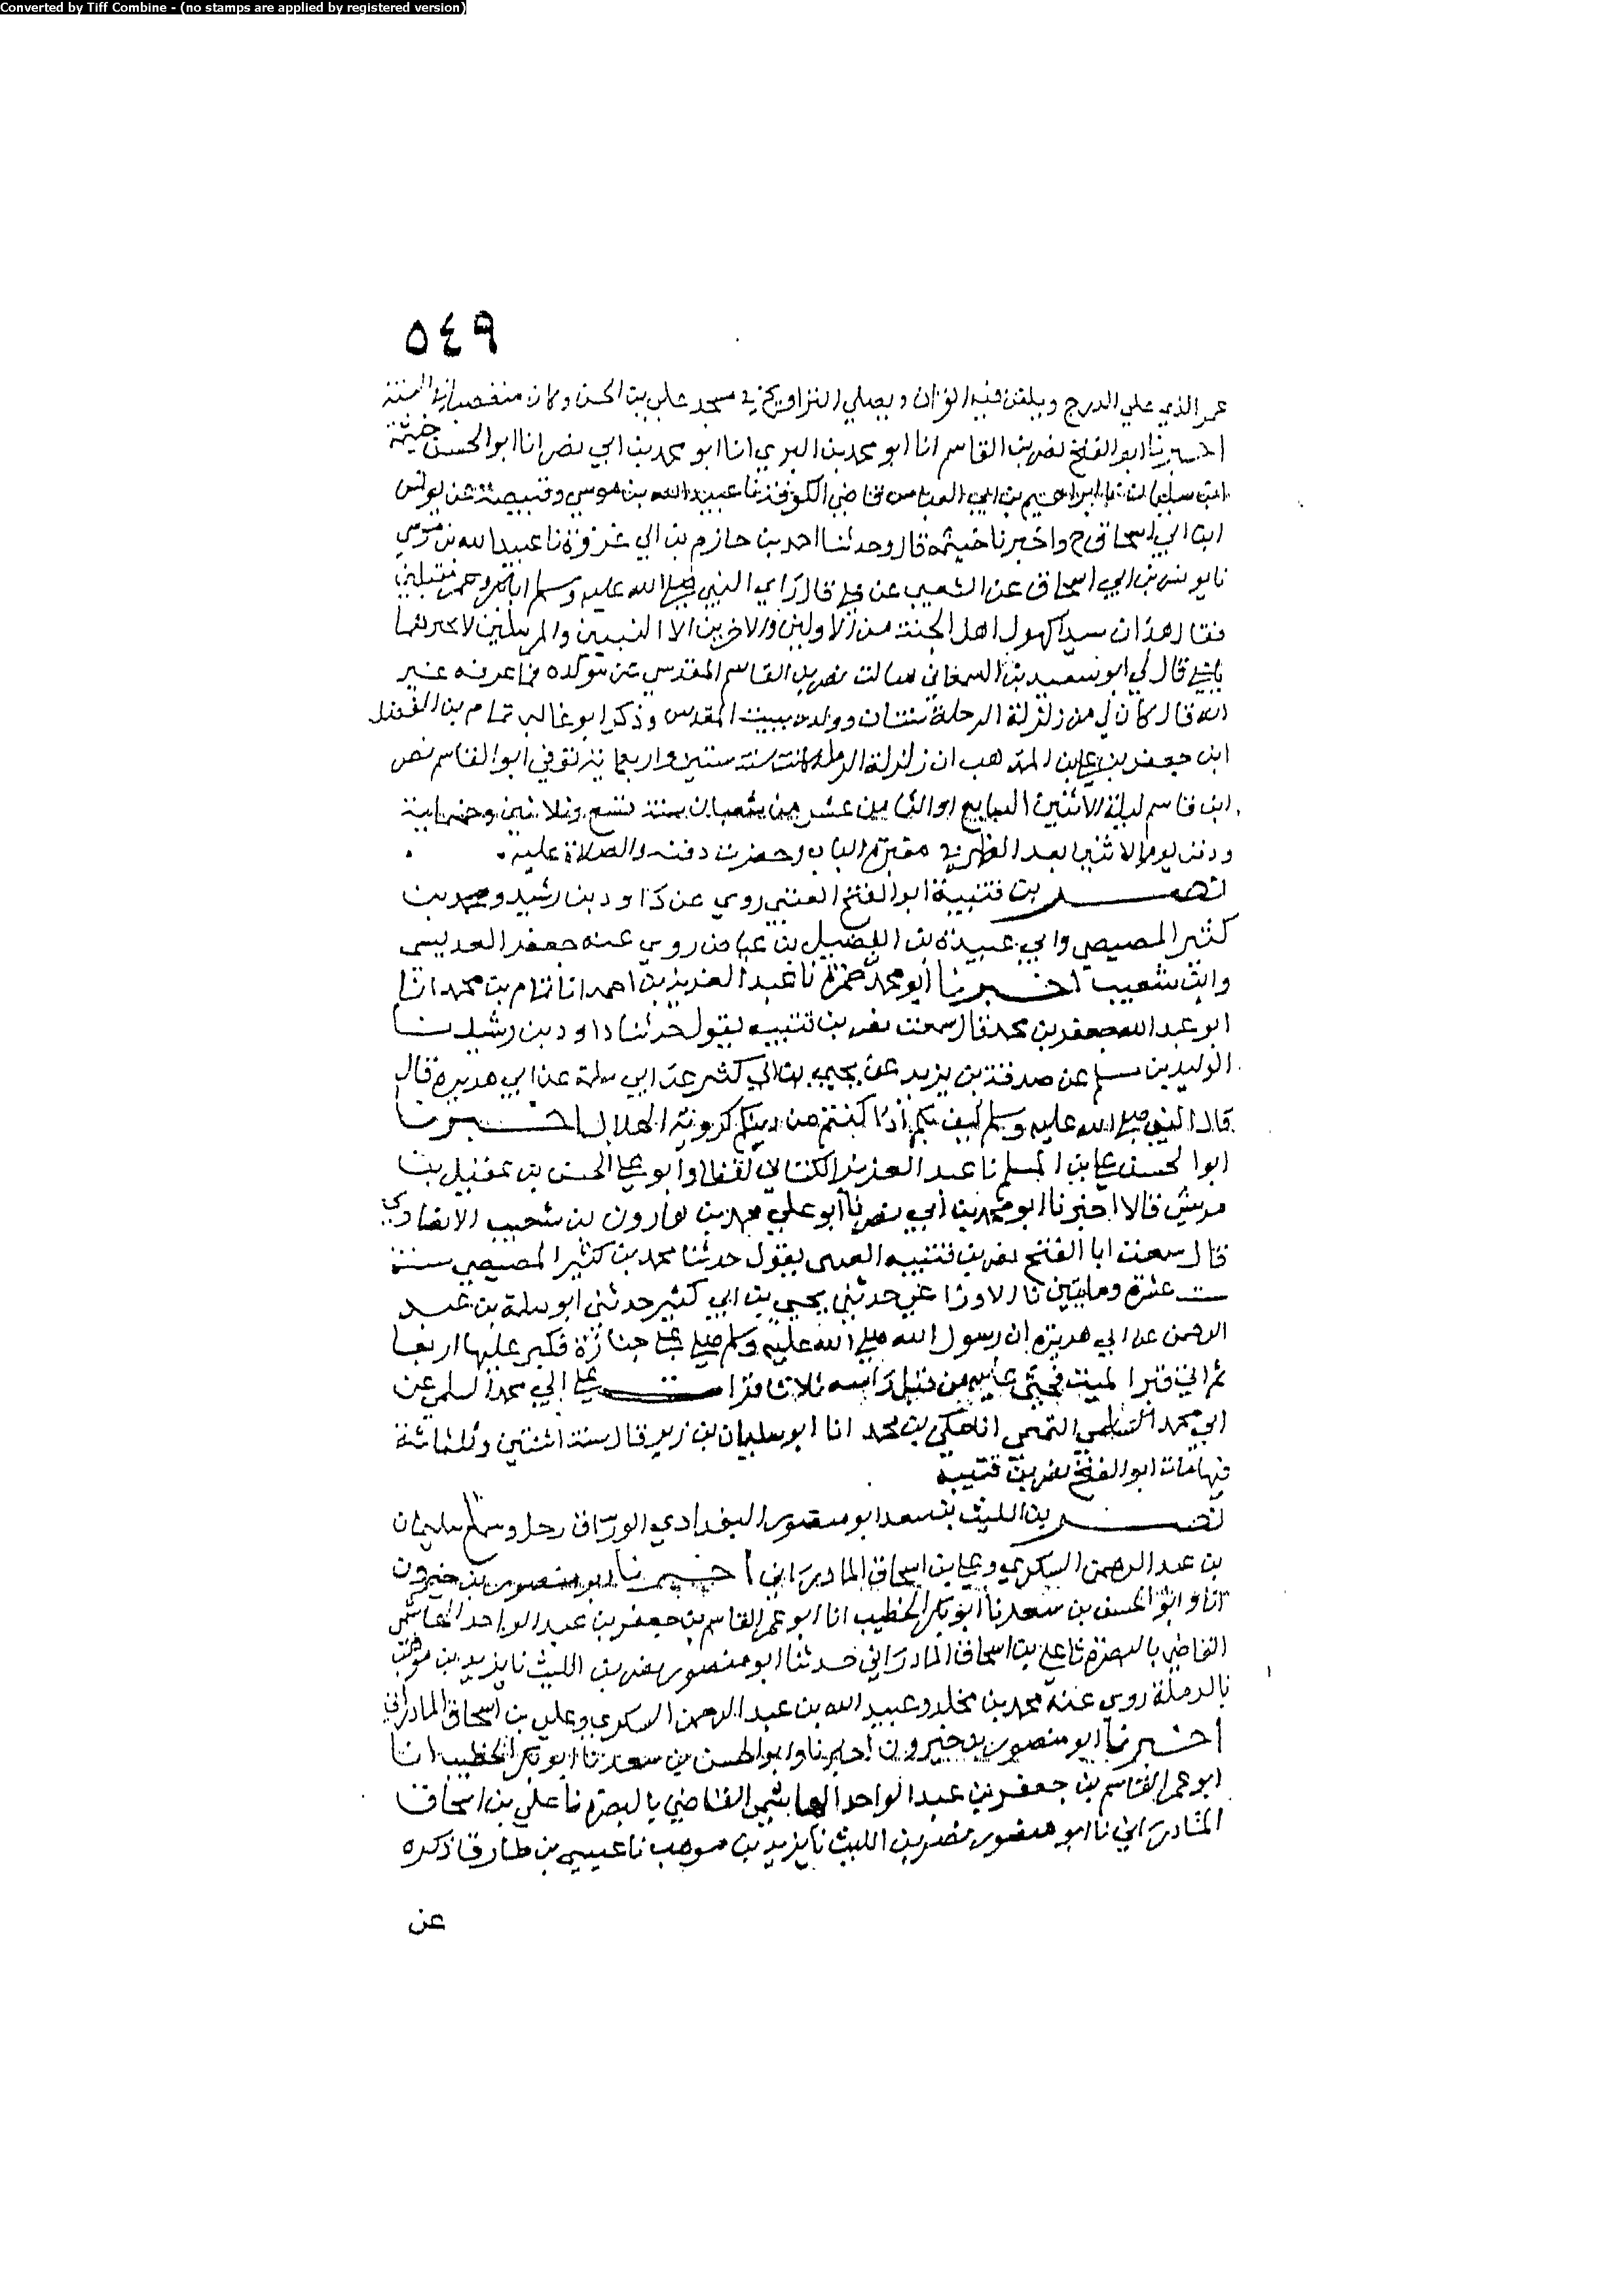 Converted by Tiff Combine - (no stamps are applied by registered version)
٥٤٩
عمر الذي علي الدرج ويلقن فيه القران ويصلي التراويح في مسجد علي بن الحسن وكان متعصبا في السنة
اخبرنا ابو الفتح نصر بن القاسم انا ابو محمد بن البري انا ابو محمد بن ابي نصر انا ابو الحسن خيثمة
ابن سليمان نا ابراهيم بن ابي العباس قاضي الكوفة نا عبيد الله بن موسي وقبيصة عن يونس
ابن ابي اسحاق ح واخبرنا خيثمة قال وحدثنا احمد بن حازم بن ابي غرزة نا عبيد الله بن موسي
نا يونس بن ابي اسحاق عن الشعبي عن علي قال راي النبي صلي الله عليه وسلم ابا بكر وعمر مقبلين
فقال هذان سيدا كهول اهل الجنة من الاولين والاخرين الا النبيين والمرسلين لا تخبرهما
يا علي قال لي ابو سعيد بن السمعاني سالت نصر بن القاسم المقدسي عن مولده فما عرفه غير
انه قال كان لي من زلزلة الرملة سنتان وولدت ببيت المقدس وذكر ابو غالب تمام بن الفضل
ابن جعفر بن علي بن المهذب ان زلزلة الرملة كانت سنة ستين واربعماية توفي ابو القاسم نصر
ابن قاسم ليلة الاثنين السابع او الثامن عشر من شعبان سنة تسع وثلاثين وخمسماية
ودفن يوم الاثنين بعد الظهر في مقبرة الباب وحضرت دفنه والصلاة عليه
نصر بن قتيبة ابو الفتح العنسي روي عن داود بن رشيد ومحمد بن
كثير المصيصي وابي عبيدة بن الفضيل بن عياض روي عنه جعفر العديسي
وابن شعيب اخبرنا ابو محمد حمزة نا عبد العزيز بن احمد انا تمام بن محمد انا
ابو عبد الله جعفر بن محمد قال سمعت نصر بن قتيبه يقول حدثنا داود بن رشيد نا
الوليد بن مسلم عن صدقة بن يزيد عن يحيى بن ابي كثير عن ابي سلمة عن ابي هريرة قال
قال النبي صلي الله عليه وسلم كيف بكم اذا كنتم من دينكم كروية الهلال اخبرنا
ابو الحسن علي بن المسلم نا عبد العزيز الكتاني لفظا وابو علي الحسن بن عقيل بن
مريش قالا اخبرنا ابو محمد بن ابي نصر نا ابو علي محمد بن هارون بن شعيب الانصاري
قال سمعت ابا الفتح نصر بن قتيبه العنسي يقول حدثنا محمد بن كثير المصيصي سنة
ست عشرة وماتين نا الاوزاعي حدثني يحيي بن ابي كثير حدثني ابو سلمة بن عبد
الرحمن عن ابي هريرة ان رسول الله صلي الله عليه وسلم صلي علي جنازة فكبر عليها اربعا
ثم اتي قبر الميت فحثي عليه من قبل راسه ثلاثا قرات علي ابي محمد السلمي عن
ابي محمد التميمي انا مكي بن محمد انا ابو سليمان بن زبر قال سنة اثنتين وثلثمائة
فيها مات ابو الفتح نصر بن قتيبه
نصر بن الليث بن سعد ابو منصور البغدادي الوراق رحل وسمع سليمان
بن عبد الرحمن السكري وعلي بن اسحاق المادراني اخبرنا ابو منصور بن خيرون
انا وابو الحسن بن سعد نا ابو بكر الخطيب انا ابو عمر القاسم بن جعفر بن عبد الواحد الهاشمي
القاضي بالبصرة نا علي بن اسحاق المادراني حدثنا ابو منصور نصر بن الليث نا يزيد بن موهب
بالرملة روي عنه محمد بن مخلد وعبيد الله بن عبد الرحمن السكري وعلي بن اسحاق المادراني
اخبرنا ابو منصور بن خيرون اخبرنا وابو الحسن بن سعد نا ابو بكر الخطيب انا
ابو عمر القاسم بن جعفر بن عبد الواحد الهاشمي القاضي بالبصرة نا علي بن اسحاق
المادراني نا ابو منصور نصر بن الليث نا يزيد بن موهب نا عيسي بن طارق ذكره
عن